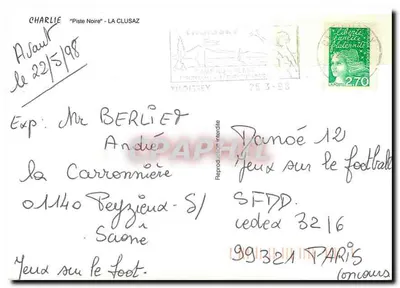 CHARLIE "Piste Noire" - LA CLUSAZ
Avant
le 22/5/98
Exp: Mr BERLIET
André
la Carronnière
01140 Peyzieux-S/
Saône
Jeux sur le foot.
Reproduction interdite
Liberté
égalité
fraternité
2,70
Danoé 12
Jeux sur le football
SFDD
cedex 3216
99321 PARIS
Concours
CPAPHIL